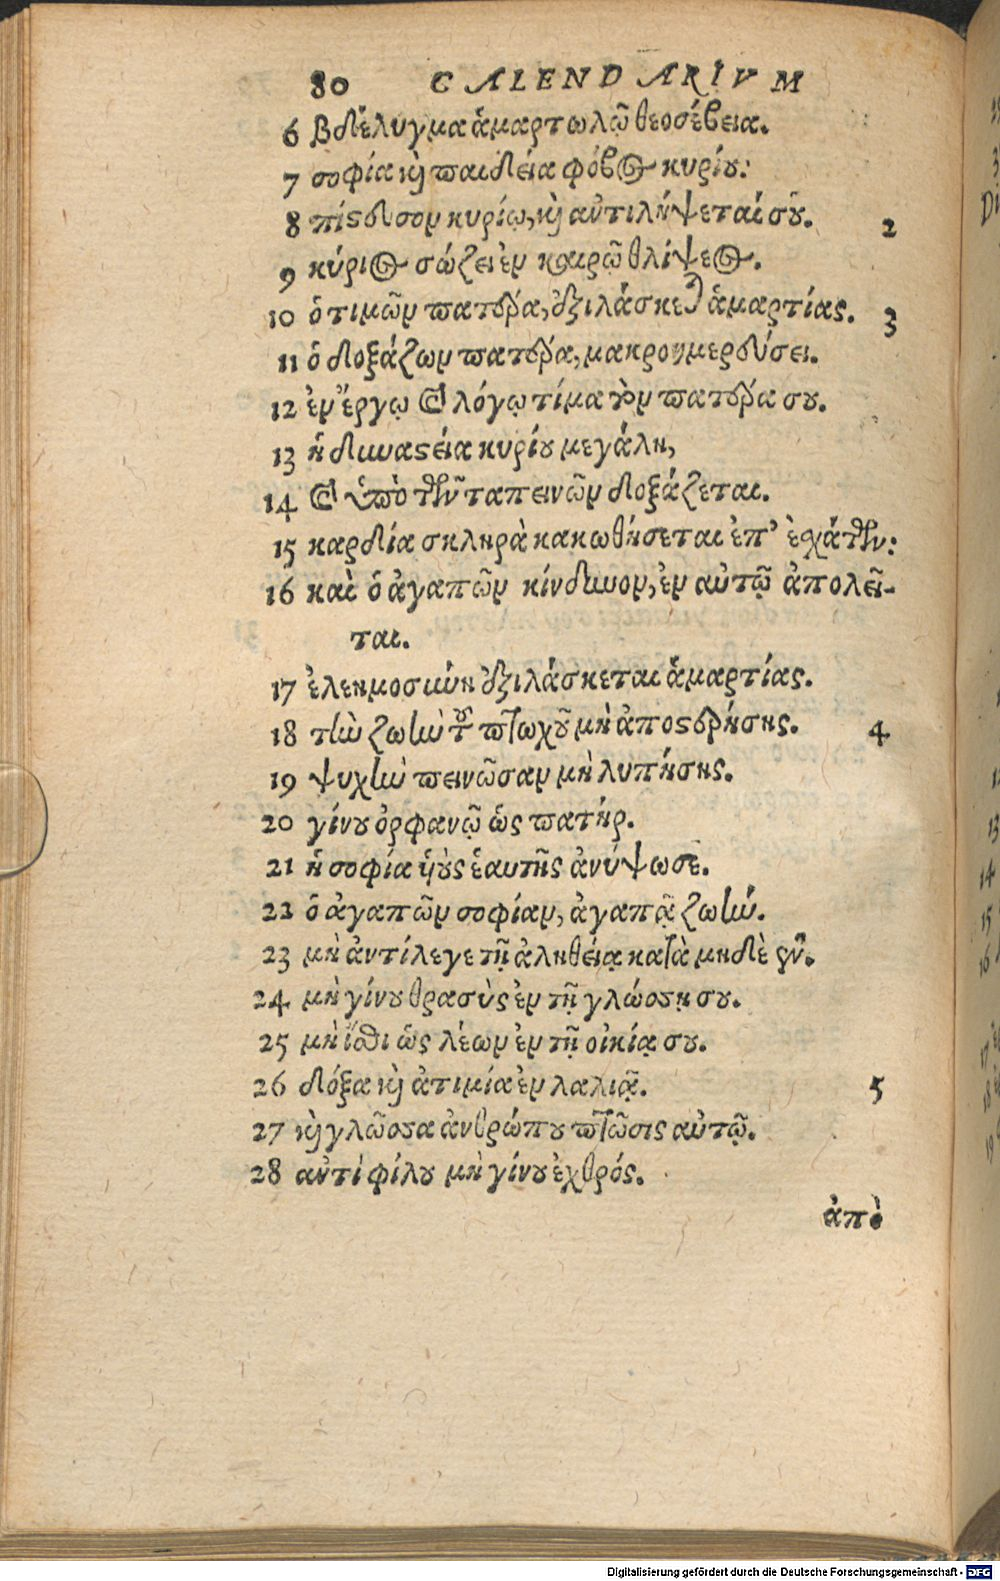 80 CALENDARIVM
6 βδέλυγμα ἁμαρτωλῷ θεοσέβεια.
7 σοφία καὶ παιδεία φόβος κυρίου:
8 πίστευσον κυρίῳ, καὶ ἀντιλήψεταί σου. 2
9 κύριος σώζει ἐν καιρῷ θλίψεως.
10 ὁ τιμῶν πατέρα, ἐξιλάσκεται ἁμαρτίας. 3
11 ὁ δοξάζων πατέρα, μακροημερεύσει.
12 ἐν ἔργῳ καὶ λόγῳ τίμα τὸν πατέρα σου.
13 ἡ δυναστεία κυρίου μεγάλη,
14 καὶ ὑπὸ τῶν ταπεινῶν δοξάζεται.
15 καρδία σκληρὰ κακωθήσεται ἐπ' ἐσχάτων:
16 καὶ ὁ ἀγαπῶν κίνδυνον, ἐν αὐτῷ ἀπολεῖ-
ται.
17 ἐλεημοσύνη ἐξιλάσκεται ἁμαρτίας.
18 τὴν ζωὴν τοῦ πτωχοῦ μὴ ἀποστρήσης. 4
19 ψυχὴν πεινῶσαν μὴ λυπήσης.
20 γίνου ὀρφανῷ ὡς πατήρ.
21 ἡ σοφία ὑοὺς ἑαυτῆς ἀνύψωσε.
22 ὁ ἀγαπῶν σοφίαν, ἀγαπᾷ ζωήν.
23 μὴ ἀντίλεγε τῇ ἀληθείᾳ κατὰ μηδὲ ἕν.
24 μὴ γίνου θρασὺς ἐν τῇ γλώσσῃ σου.
25 μὴ ἴσθι ὡς λέων ἐν τῇ οἰκίᾳ σου.
26 δόξα καὶ ἀτιμία ἐν λαλιᾷ. 5
27 καὶ γλῶσσα ἀνθρώπου πτῶσις αὐτῷ.
28 ἀντὶ φίλου μὴ γίνου ἐχθρός.
ἀπὸ
Digitalisierung gefördert durch die Deutsche Forschungsgemeinschaft - DFG